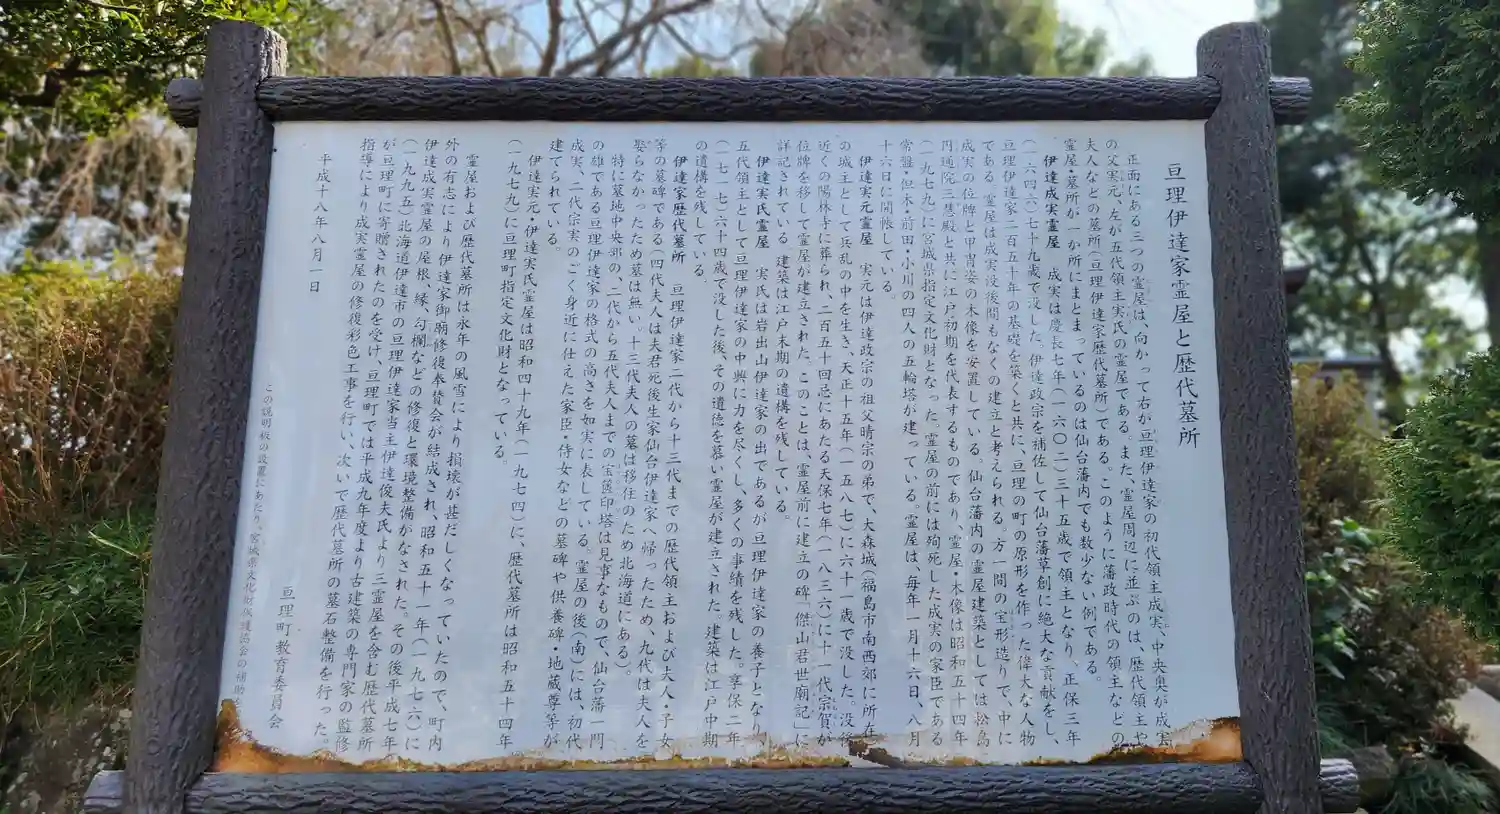 亘理伊達家霊屋と歴代墓所
正面にある三つの霊屋は、向かって右が亘理伊達家の初代領主成実、中央奥が成実
の父実元、左が五代領主実氏の霊屋である。また、霊屋周辺に並ぶのは、歴代領主や
夫人などの墓所（亘理伊達家歴代墓所）である。このように藩政時代の領主などの
霊屋・墓所が一か所にまとまっているのは仙台藩内でも数少ない例である。
伊達成実霊屋　成実は慶長七年（一六〇二）三十五歳で領主となり、正保三年
（一六四六）七十九歳で没した。伊達政宗を補佐して仙台藩草創に絶大な貢献をし、
亘理伊達家二百五十年の基礎を築くと共に、亘理の町の原形を作った偉大な人物
である。霊屋は成実没後間もなくの建立と考えられる。方一間の宝形造りで、中に
成実の位牌と甲冑姿の木像を安置している。仙台藩内の霊屋建築としては松島
円通院三慧殿と共に江戸初期を代表するものであり、霊屋・木像は昭和五十四年
（一九七九）に宮城県指定文化財となった。霊屋の前には殉死した成実の家臣である
常盤・但木・前田・小川の四人の五輪塔が建っている。霊屋は、毎年一月十六日、八月
十六日に開帳している。
伊達実元霊屋　実元は伊達政宗の祖父晴宗の弟で、大森城（福島市南西郊に所在）
の城主として兵乱の中を生き、天正十五年（一五八七）に六十一歳で没した。没後
近くの陽林寺に葬られ、二百五十回忌にあたる天保七年（一八三六）に十一代宗賀が
位牌を移して霊屋が建立された。このことは、霊屋前に建立の碑「傑山君世廟記」に
詳記されている。建築は江戸末期の遺構を残している。
伊達実氏霊屋　実氏は岩出山伊達家の出であるが亘理伊達家の養子となり
五代領主として亘理伊達家の中興に力を尽くし、多くの事績を残した。享保二年
（一七一七）六十四歳で没した後、その遺徳を慕い霊屋が建立された。建築は江戸中期
の遺構を残している。
伊達家歴代墓所　亘理伊達家二代から十三代までの歴代領主および夫人・子女
等の墓碑である（四代夫人は夫君死後生家仙台伊達家へ帰ったため、九代は夫人を
娶らなかったため墓は無い。十三代夫人の墓は移住のため北海道にある）。
特に墓地中央部の、二代から五代夫人までの宝篋印塔は見事なもので、仙台藩一門
の雄である亘理伊達家の格式の高さを如実に表している。霊屋の後（南）には、初代
成実、二代宗実のごく身近に仕えた家臣・侍女などの墓碑や供養碑・地蔵尊等が
建てられている。
伊達実元・伊達実氏霊屋は昭和四十九年（一九七四）に、歴代墓所は昭和五十四年
（一九七九）に亘理町指定文化財となっている。
霊屋および歴代墓所は永年の風雪により損壊が甚だしくなっていたので、町内
外の有志により伊達家御廟修復奉賛会が結成され、昭和五十一年（一九七六）に
伊達成実霊屋の屋根、縁、勾欄などの修復と環境整備がなされた。その後平成七年
（一九九五）北海道伊達市の亘理伊達家当主伊達俊夫氏より三霊屋を含む歴代墓所
が亘理町に寄贈されたのを受け、亘理町では平成九年度より古建築の専門家の監修
指導により成実霊屋の修復彩色工事を行い、次いで歴代墓所の墓石整備を行った。
平成十八年八月一日
亘理町教育委員会
この説明板の設置にあたり、宮城県文化財保護協会の補助を